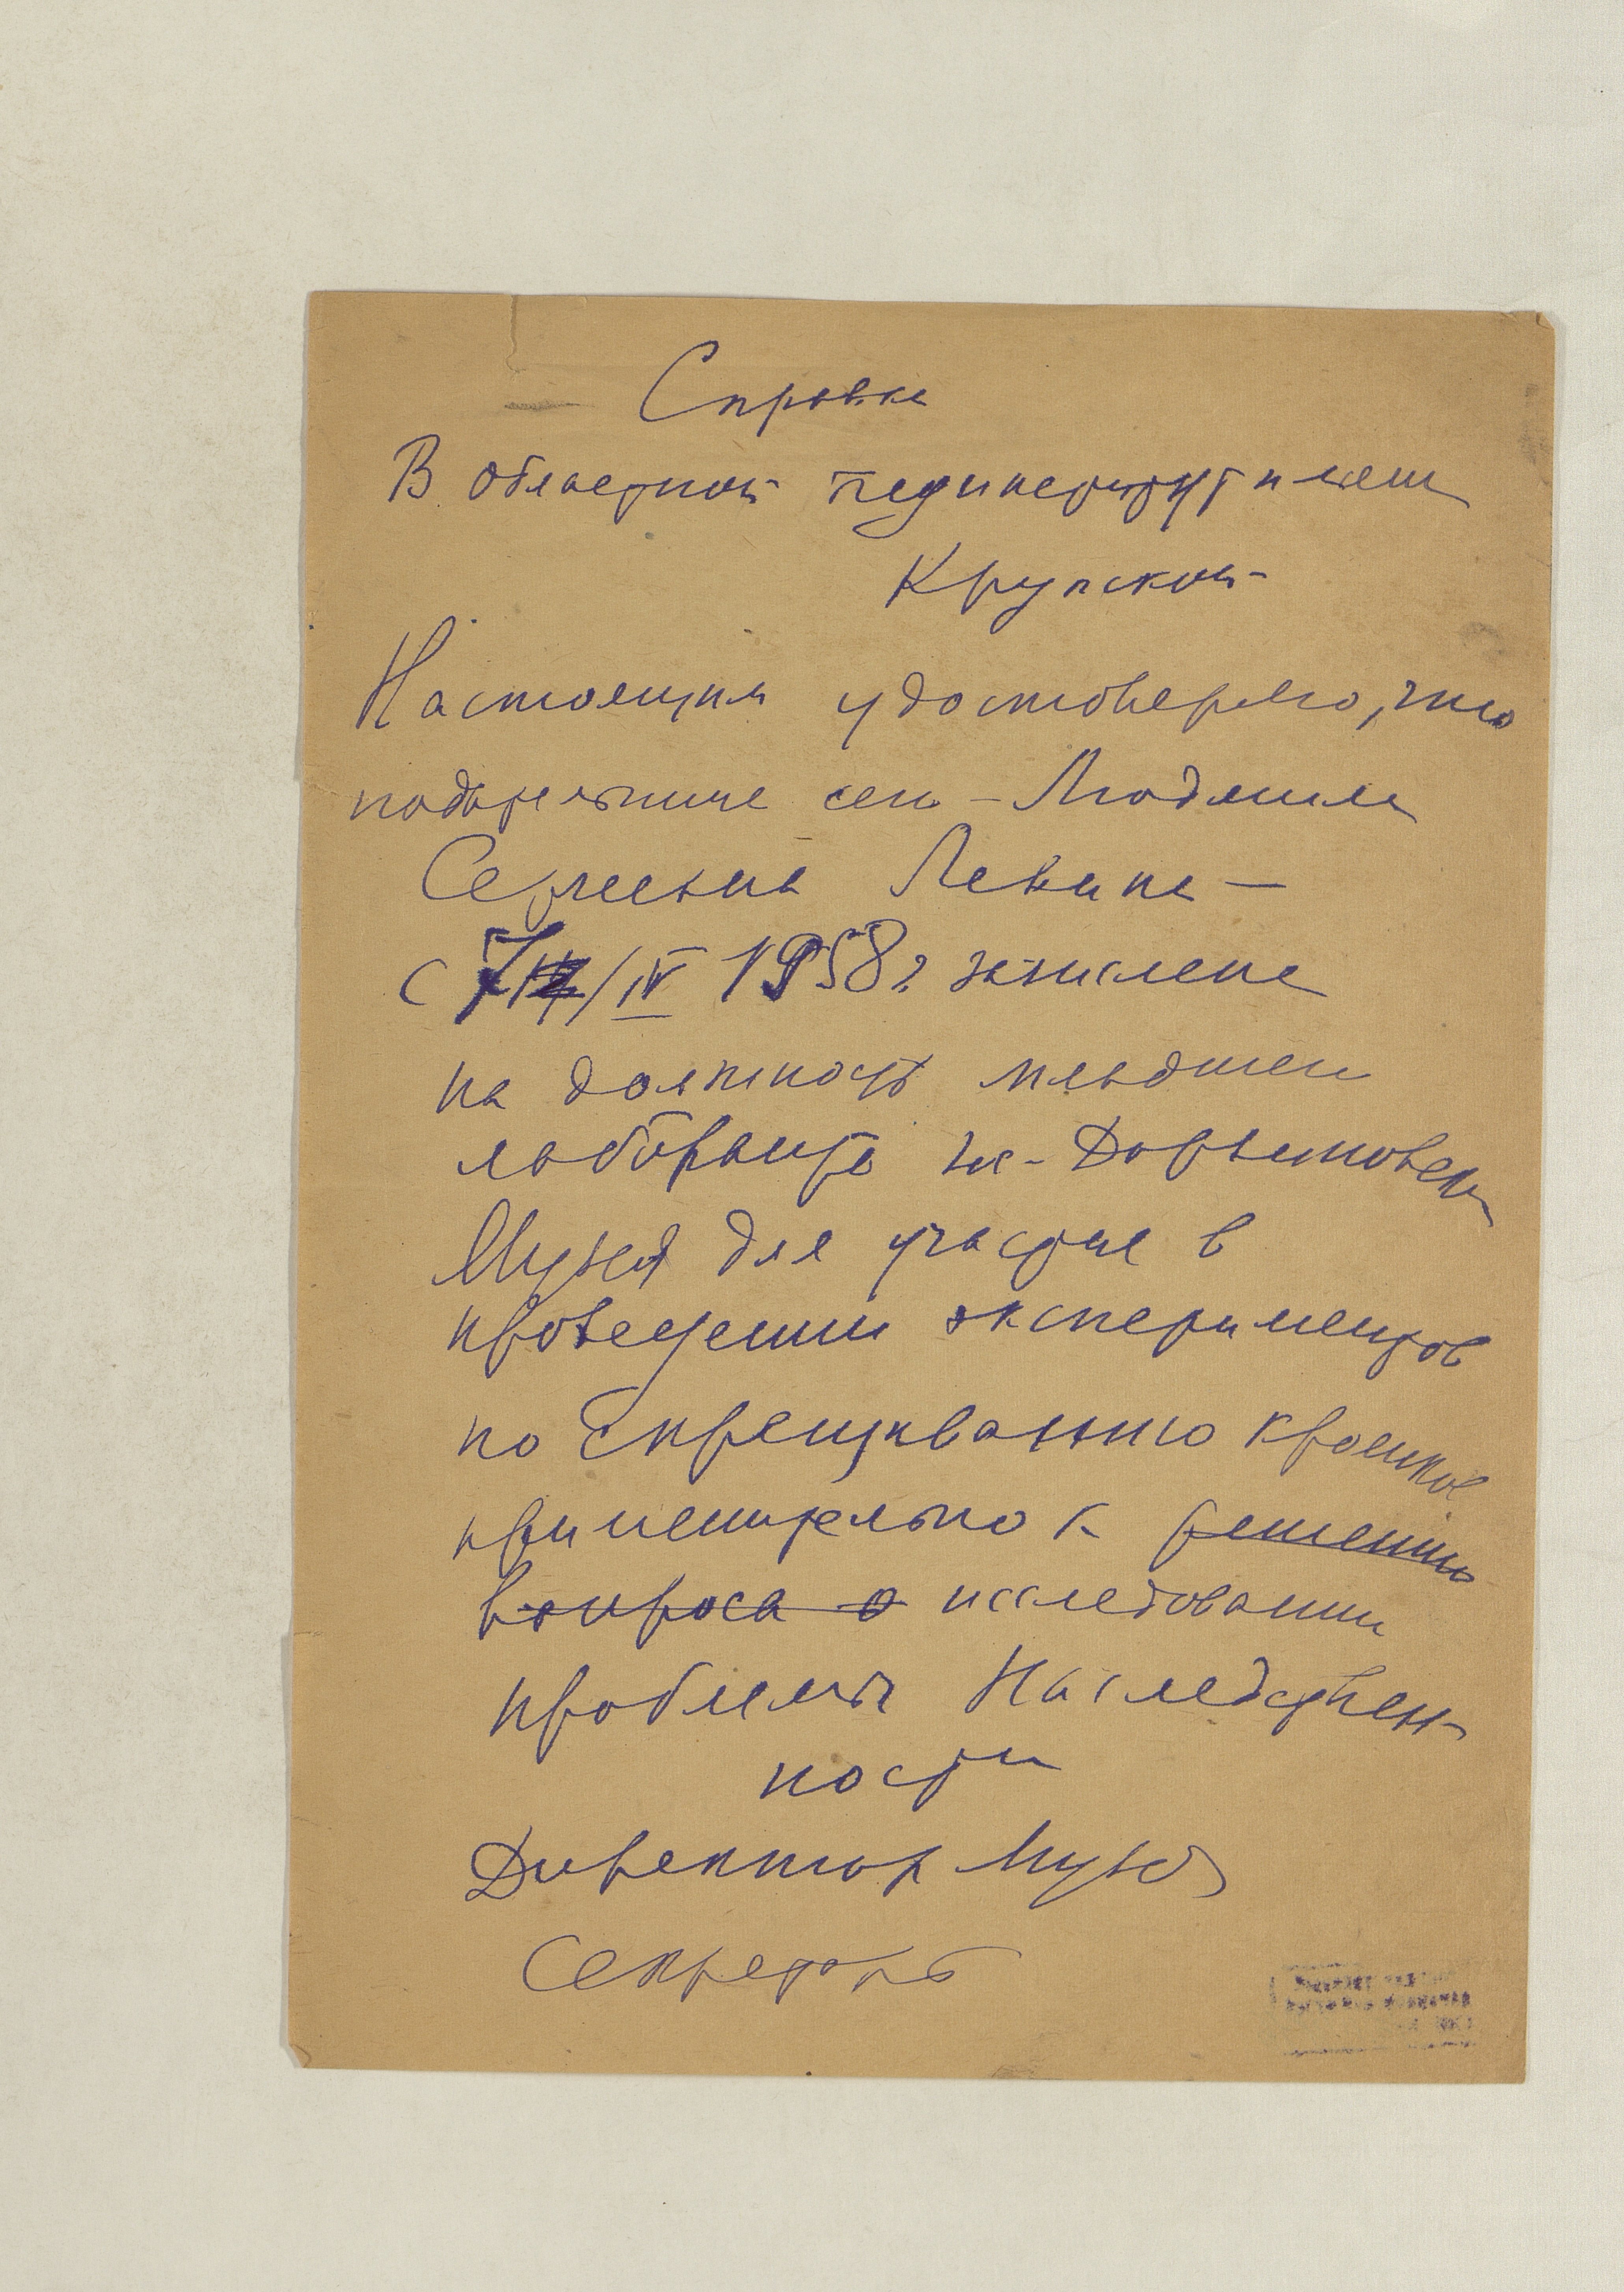 Справка
В областной пединститут имени
Крупской
Настоящим удостоверяю, что
подательница сего – Людмила
Сергеевна Левина –
с 7/IV 1958 г. зачислена
на должность младшего
лаборанта Гос. Дарвиновского
Музея для участия в
проведении экспериментов
по скрещиванию кроликов
применительно к решению
вопроса о исследовании
проблемы Наследствен-
ности
Директор Музея
Секретарь